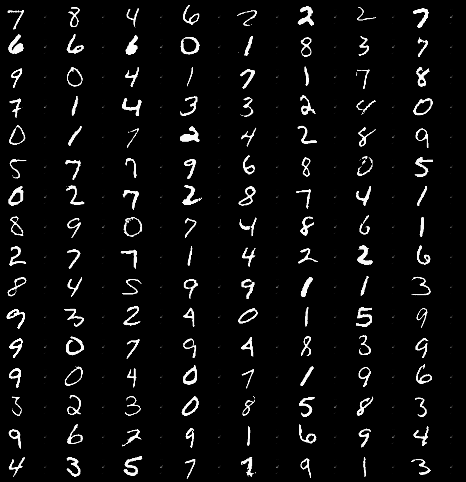 7 8 4 6 2 2 2 7
6 6 6 0 1 8 3 7
9 0 4 1 7 1 7 8
7 1 4 3 3 2 4 0
0 1 7 2 4 2 8 9
5 7 7 9 6 8 0 5
0 2 7 2 8 7 4 1
8 9 0 7 4 8 6 1
2 7 7 1 4 2 2 6
8 4 5 9 9 1 1 3
9 3 2 4 0 1 5 9
9 0 7 9 4 8 3 9
9 0 4 0 7 1 9 6
3 2 3 0 8 5 8 3
9 6 7 9 1 6 9 4
4 3 5 7 1 9 1 3